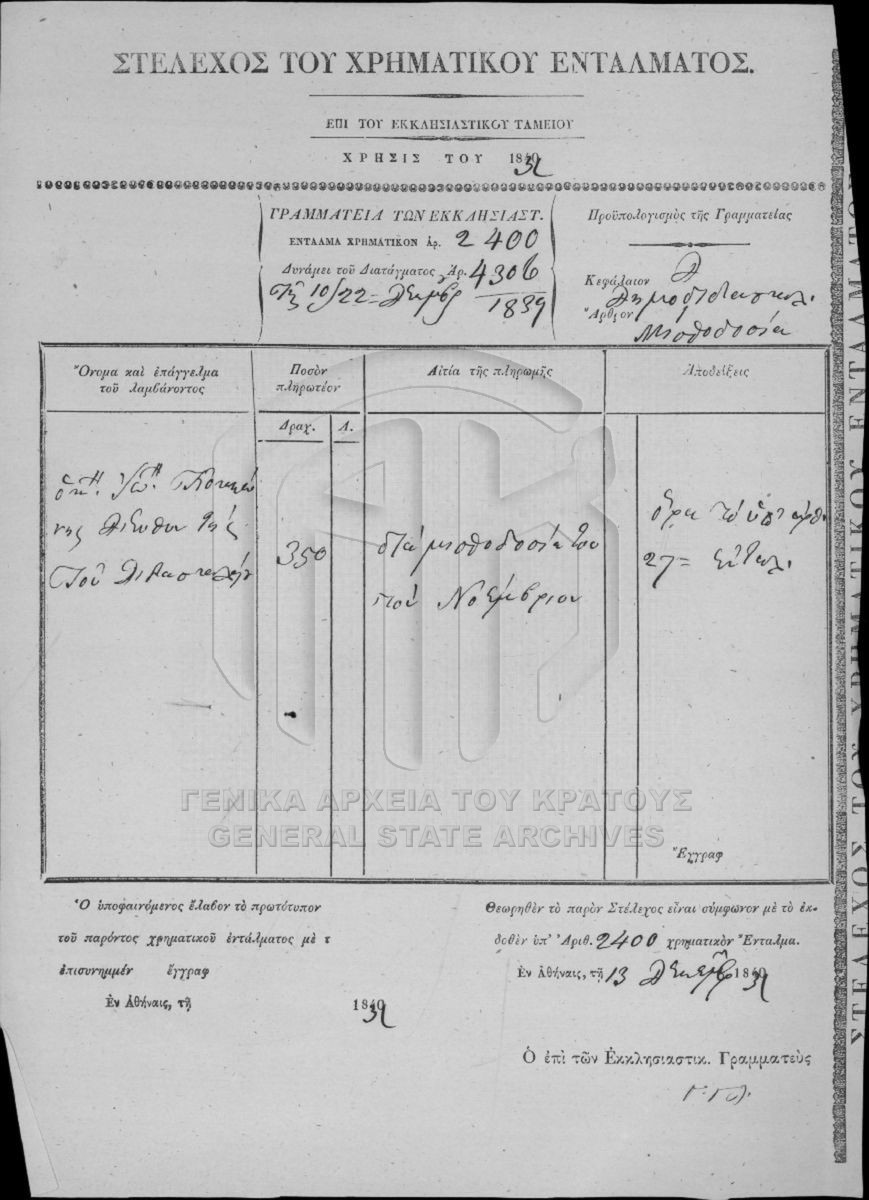 ΣΤΕΛΕΧΟΣ ΤΟΥ ΧΡΗΜΑΤΙΚΟΥ ΕΝΤΑΛΜΑΤΟΣ.
ΕΠΙ ΤΟΥ ΕΚΚΛΗΣΙΑΣΤΙΚΟΥ ΤΑΜΕΙΟΥ
ΧΡΗΣΙΣ ΤΟΥ 1839
ΓΡΑΜΜΑΤΕΙΑ ΤΩΝ ΕΚΚΛΗΣΙΑΣΤ.
ΕΝΤΑΛΜΑ ΧΡΗΜΑΤΙΚΟΝ Αρ. 2400
Δυνάμει τοῦ Διατάγματος Ἀρ. 4306
τῆς 10/22 = Δεκμβρ 1839
Προϋπολογισμὸς τῆς Γραμματείας
Κεφάλαιον Δ
Δημοδιδασκαλ.
Ἄρθρον
Μισθοδοσία
Ὄνομα καὶ ἐπάγγελμα
τοῦ λαμβάνοντος
Ποσὸν
πληρωτέον
Δραχ. Λ.
Αἰτία τῆς πληρωμῆς
Ἀποδείξεις
Ἰω. Κοκκώ
νης Διευθυντής
τοῦ Διδασκαλείου
350
διὰ μισθοδοσίαν του
τοῦ Νοέμβριου
ὅρα τὸ ὑπ' ἀρθ.
27 = ἔνταλ.
Ἔγγραφ
ΓΕΝΙΚΑ ΑΡΧΕΙΑ ΤΟΥ ΚΡΑΤΟΥΣ
GENERAL STATE ARCHIVES
Ὁ ὑποφαινόμενος ἔλαβον τὸ πρωτότυπον
τοῦ παρόντος χρηματικοῦ ἐντάλματος μὲ τ
ἐπισυνημμέν ἔγγραφ
Ἐν Ἀθήναις, τῇ 1839
Θεωρηθὲν τὸ παρὸν Στέλεχος εἶναι σύμφωνον μὲ τὸ ἐκ-
δοθὲν ὑπ' Ἀριθ. 2400 χρηματικὸν Ἔνταλμα.
Ἐν Ἀθήναις, τῇ 13 Δεκεμβρ 1839
Ὁ ἐπὶ τῶν Ἐκκλησιαστικ. Γραμματεὺς
ΣΤΕΛΕΧΟΣ ΤΟΥ ΧΡΗΜΑΤΙΚΟΥ ΕΝΤΑΛΜΑΤΟΣ